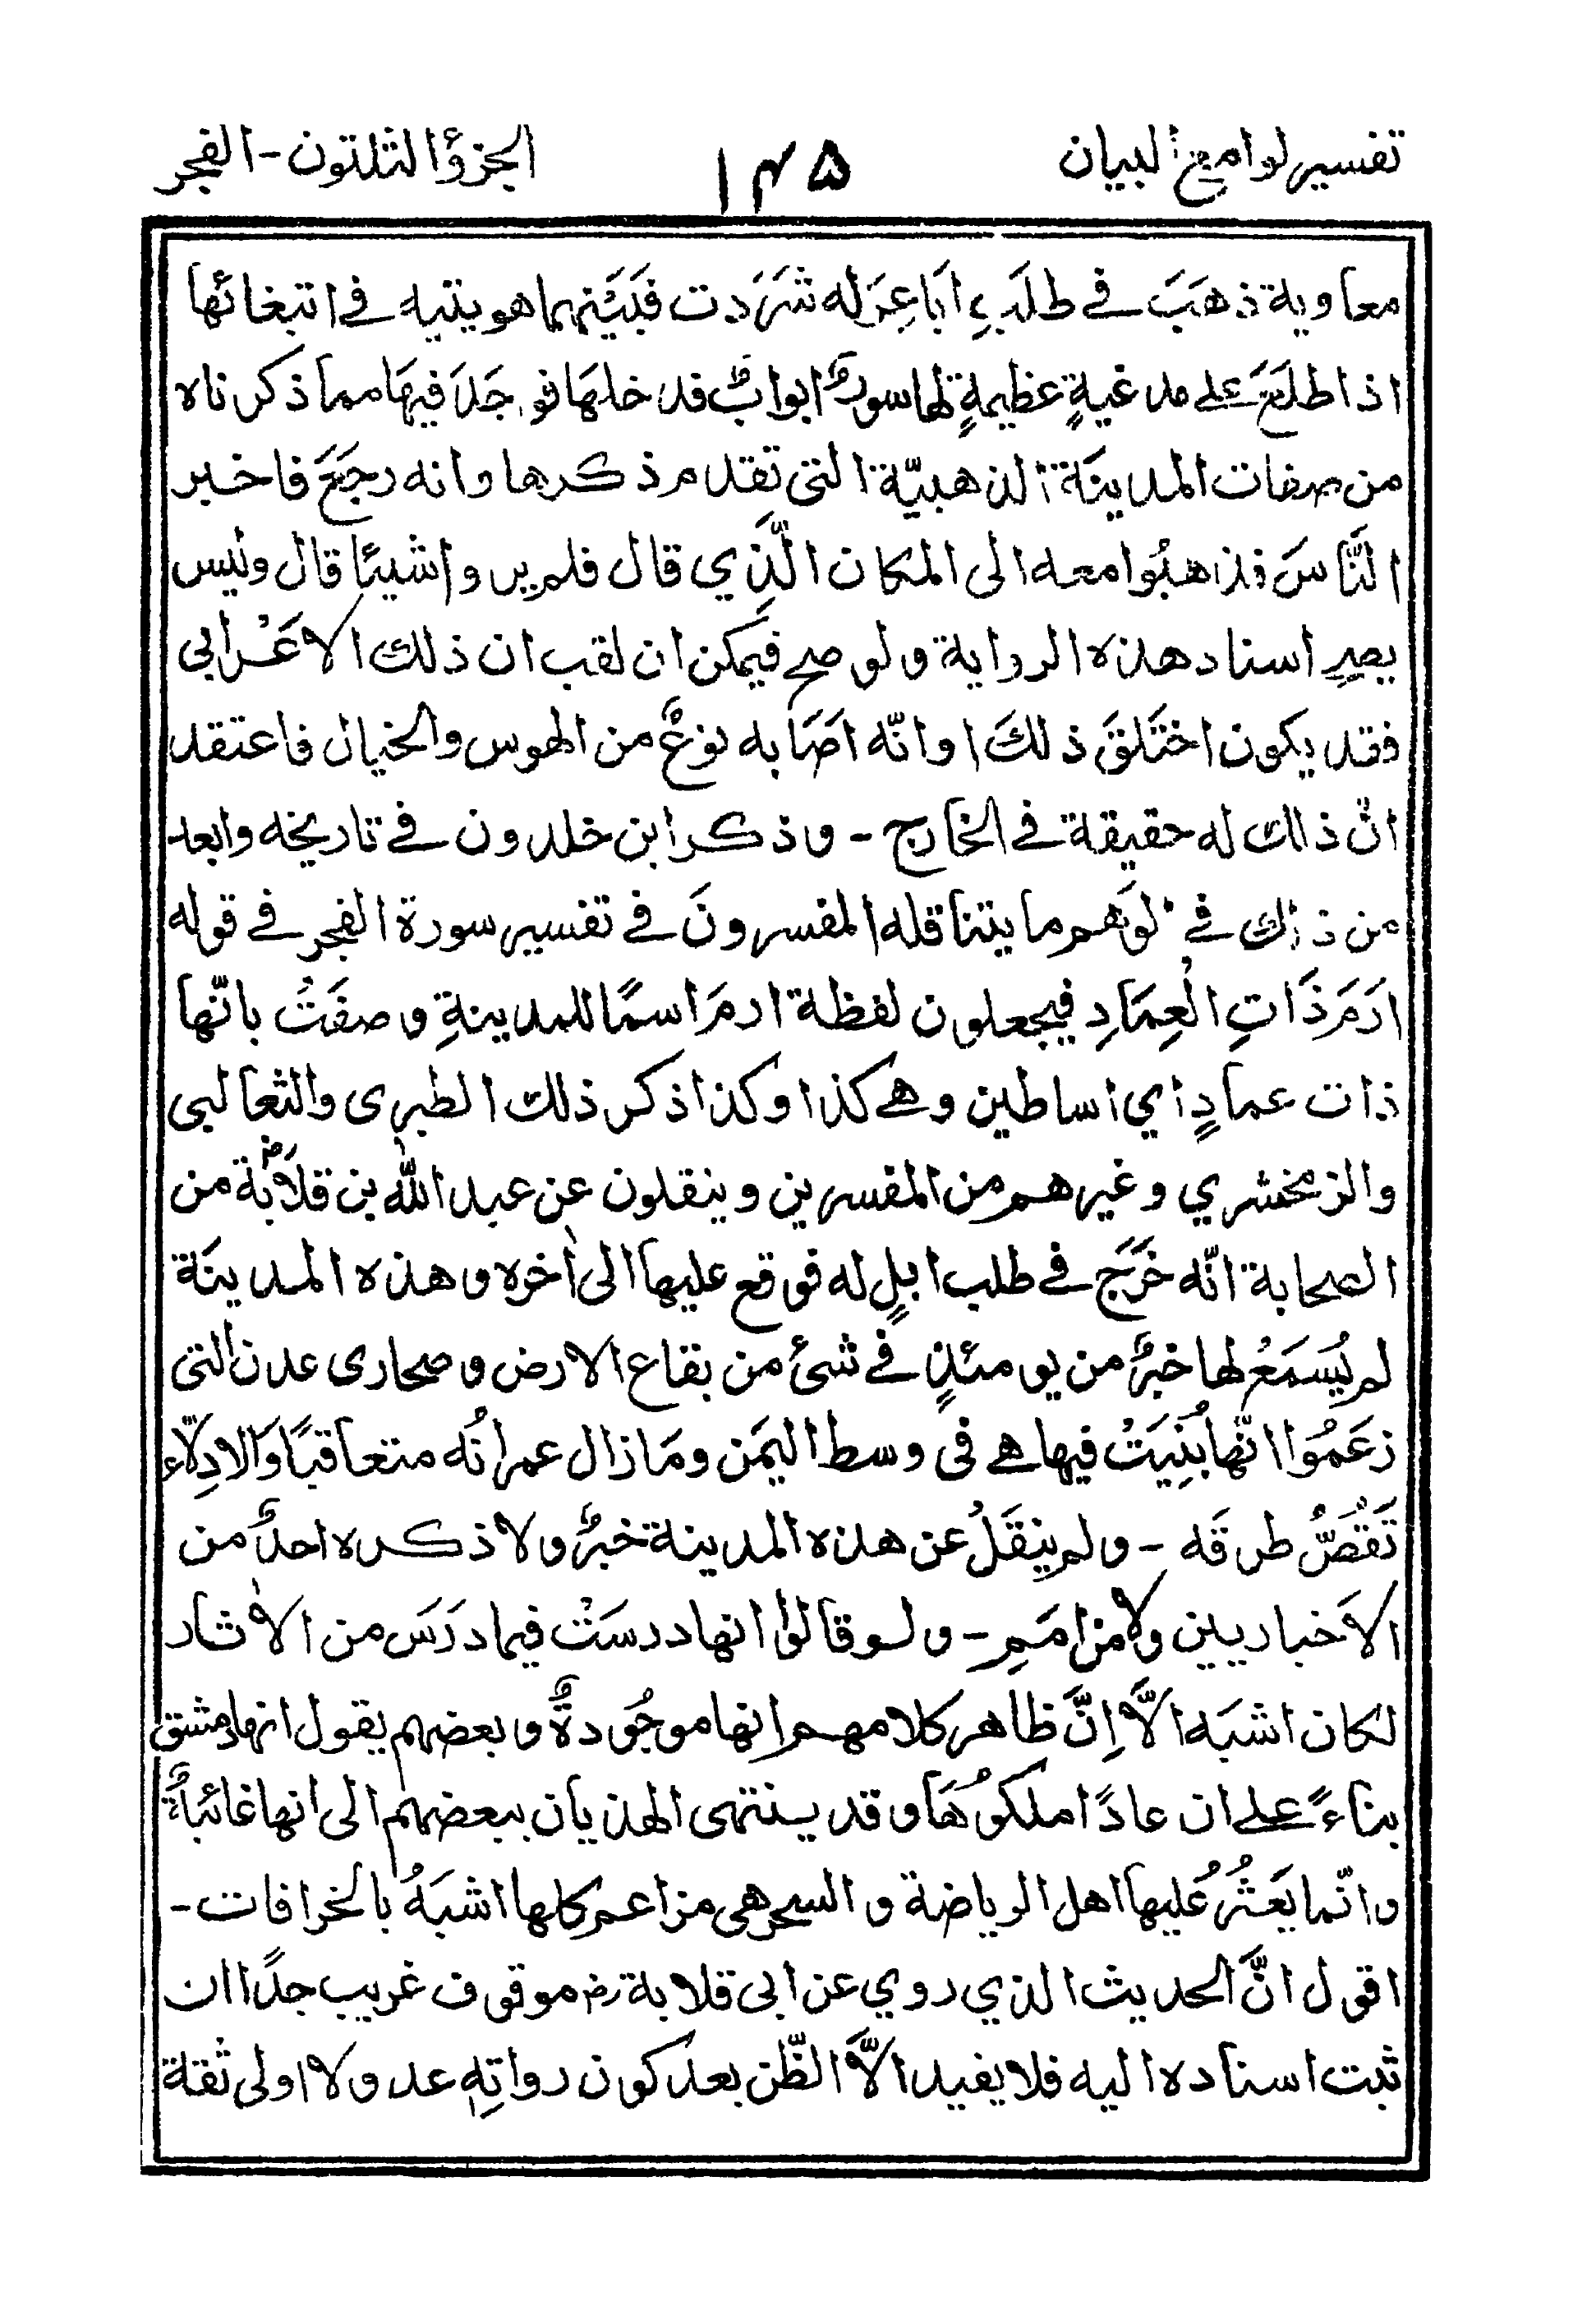 تفسير لوامع البيان ۱۴۵ الجزؤ الثلثون - الفجر
معاوية ذهَبَ في طلَبِ اَبَاعِرَ له شَرَدت فبَيْنهما هو يتيه في ابتغائها
اذا طلَعَ على مدغيةٍ عظيمةٍ لها سورٌ ابوابٌ فدخلهَا فوجَدَ فيهَا مما ذكرناه
من صفات المدينَة الذهبيّة التى تقدم ذكرها وانه رجَعَ فاخبر
النَّاسَ فذهبُوا معه الى المكان الَّذِي قال فلم يروا شيئا قال وليس
يصِرِ اسناد هذه الرواية ولو صح فيمكن ان لقب ان ذلك الاعْرابى
فقد يكون اختَلقَ ذلكَ او انّه اصَابه نوعٌ من الهوس والخيال فاعتقد
انّ ذالك له حقيقة في الخارج - وذكر ابن خلدون في تاريخه وابعد
من ذلك في الوَهم ما يتناقله المفسرونَ في تفسير سورة الفجر في قوله
ارَمَ ذَاتِ الْعِمَادِ فيجعلون لفظة ارمَ اسمًا للمدينةِ وصفَتُ بانّها
ذات عمادٍ اي اساطين وهي كذا وكذا ذكر ذلك الطبرى والثعالبى
والزمخشري وغيرهم من المفسرين وينقلون عن عبد الله بن قلابَة من
الصحابة انّه خَرَج في طلب ابلٍ له فوقع عليها الى اٰخره وهذه المدينَة
لم يُسمَعُ لها خبرٌ من يومئذٍ في شئ من بقاع الارض وصحارى عدن التى
زعَمُوا انّها بُنِيَتُ فيها هي فى وسط اليمَن ومَا زال عمرانُه متعاقبًا وَالادِلّاء
تَقُصُّ طرقَه - ولم ينقَلُ عن هذه المدينة خبرٌ ولا ذكره احدٌ من
الاَخباريين ولا من امَمِ - ولو قالوا انها درسَتْ فيما درَسَ من الاٰثار
لكان اشبَه الاَّ اِنَّ ظاهر كلامهم انها موجُودةٌ وبعضهم يقول انها دمشق
بناءً على ان عادًا ملكوُهَا وقد ينتهى الهذيان ببعضهم الى انها غائبةٌ
وانّما يَعثُرُ عَليها اهل الرياضة والسحر هى مزاعم كلها اشبَهُ بالخرافات -
اقول انَّ الحديث الذي روي عن ابى قلابة رض موقوف غريب جدًا ان
ثبت اسناده اليه فلا يفيد الاَّ الظّن بعد كون رواتِهٖ عدولا اولى ثقة